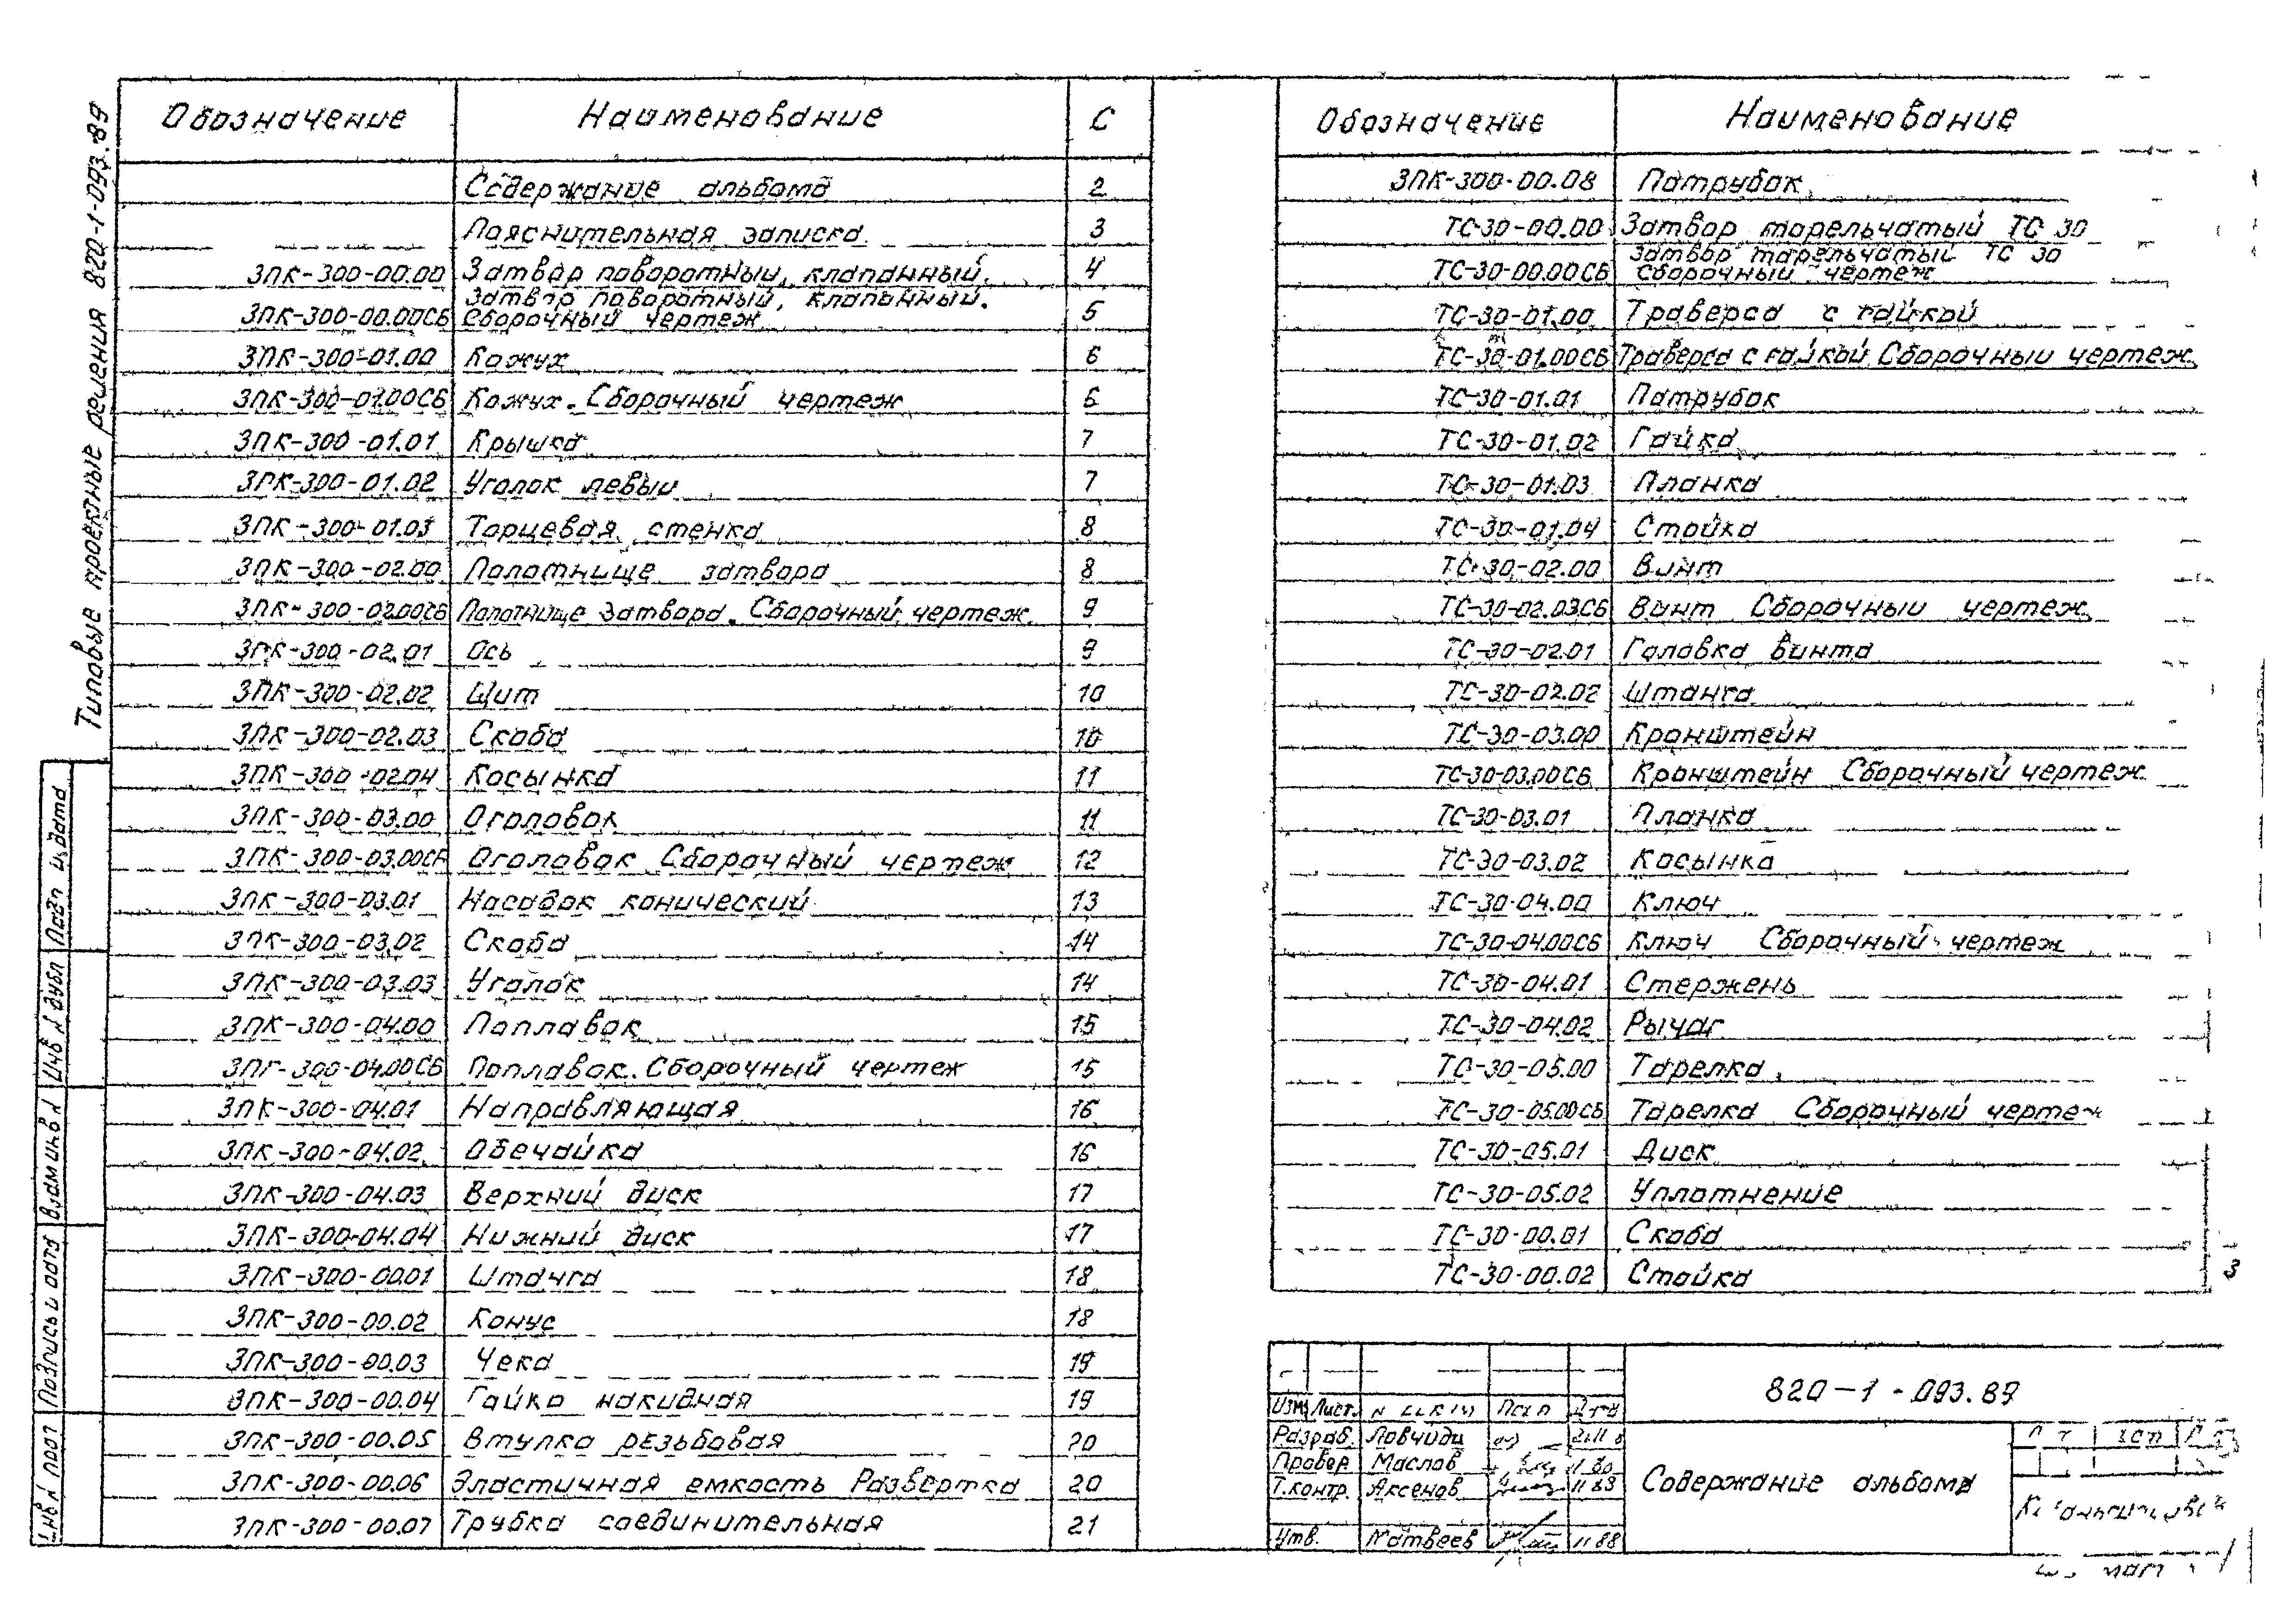 Типовые проектные решения 820-1-093.89
Обозначение Наименование С
Содержание альбома 2
Пояснительная записка 3
ЗПК-300-00.00 Затвор поворотный, клапанный. 4
Затвор поворотный, клапанный.
ЗПК-300-00.00СБ Сборочный чертеж 5
ЗПК-300-01.00 Кожух 6
ЗПК-300-01.00СБ Кожух. Сборочный чертеж 6
ЗПК-300-01.01 Крышка 7
ЗПК-300-01.02 Уголок левый 7
ЗПК-300-01.03 Торцевая стенка 8
ЗПК-300-02.00 Полотнище затвора 8
ЗПК-300-02.00СБ Полотнище затвора. Сборочный чертеж 9
ЗПК-300-02.01 Ось 9
ЗПК-300-02.02 Щит 10
ЗПК-300-02.03 Скоба 10
ЗПК-300-02.04 Косынка 11
ЗПК-300-03.00 Оголовок 11
ЗПК-300-03.00СБ Оголовок Сборочный чертеж 12
ЗПК-300-03.01 Насадок конический 13
ЗПК-300-03.02 Скоба 14
ЗПК-300-03.03 Уголок 14
ЗПК-300-04.00 Поплавок 15
ЗПК-300-04.00СБ Поплавок. Сборочный чертеж 15
ЗПК-300-04.01 Направляющая 16
ЗПК-300-04.02 Обечайка 16
ЗПК-300-04.03 Верхний диск 17
ЗПК-300-04.04 Нижний диск 17
ЗПК-300-00.01 Штанга 18
ЗПК-300-00.02 Конус 18
ЗПК-300-00.03 Чека 19
ЗПК-300-00.04 Гайка накидная 19
ЗПК-300-00.05 Втулка резьбовая 20
ЗПК-300-00.06 Эластичная емкость Развертка 20
ЗПК-300-00.07 Трубка соединительная 21
Обозначение Наименование
ЗПК-300-00.08 Патрубок
ТС-30-00.00 Затвор тарельчатый ТС 30
Затвор тарельчатый ТС 30
ТС-30-00.00СБ Сборочный чертеж
ТС-30-01.00 Траверса с гайкой
ТС-30-01.00СБ Траверса с гайкой Сборочный чертеж
ТС-30-01.01 Патрубок
ТС-30-01.02 Гайка
ТС-30-01.03 Планка
ТС-30-01.04 Стойка
ТС-30-02.00 Винт
ТС-30-02.03СБ Винт Сборочный чертеж
ТС-30-02.01 Головка винта
ТС-30-02.02 Штанга
ТС-30-03.00 Кронштейн
ТС-30-03.00СБ Кронштейн Сборочный чертеж
ТС-30-03.01 Планка
ТС-30-03.02 Косынка
ТС-30-04.00 Ключ
ТС-30-04.00СБ Ключ Сборочный чертеж
ТС-30-04.01 Стержень
ТС-30-04.02 Рычаг
ТС-30-05.00 Тарелка
ТС-30-05.00СБ Тарелка Сборочный чертеж
ТС-30-05.01 Диск
ТС-30-05.02 Уплотнение
ТС-30-00.01 Скоба
ТС-30-00.02 Стойка
3
820-1-093.89
Изм Лист
Разраб.
Провер Маслов
Т.контр. Аксенов 11 88
Утв. Матвеев 11 88
Содержание альбома
Подп и дата
Инв N дубл
Взам инв N
Подпись и дата
Инв N подл